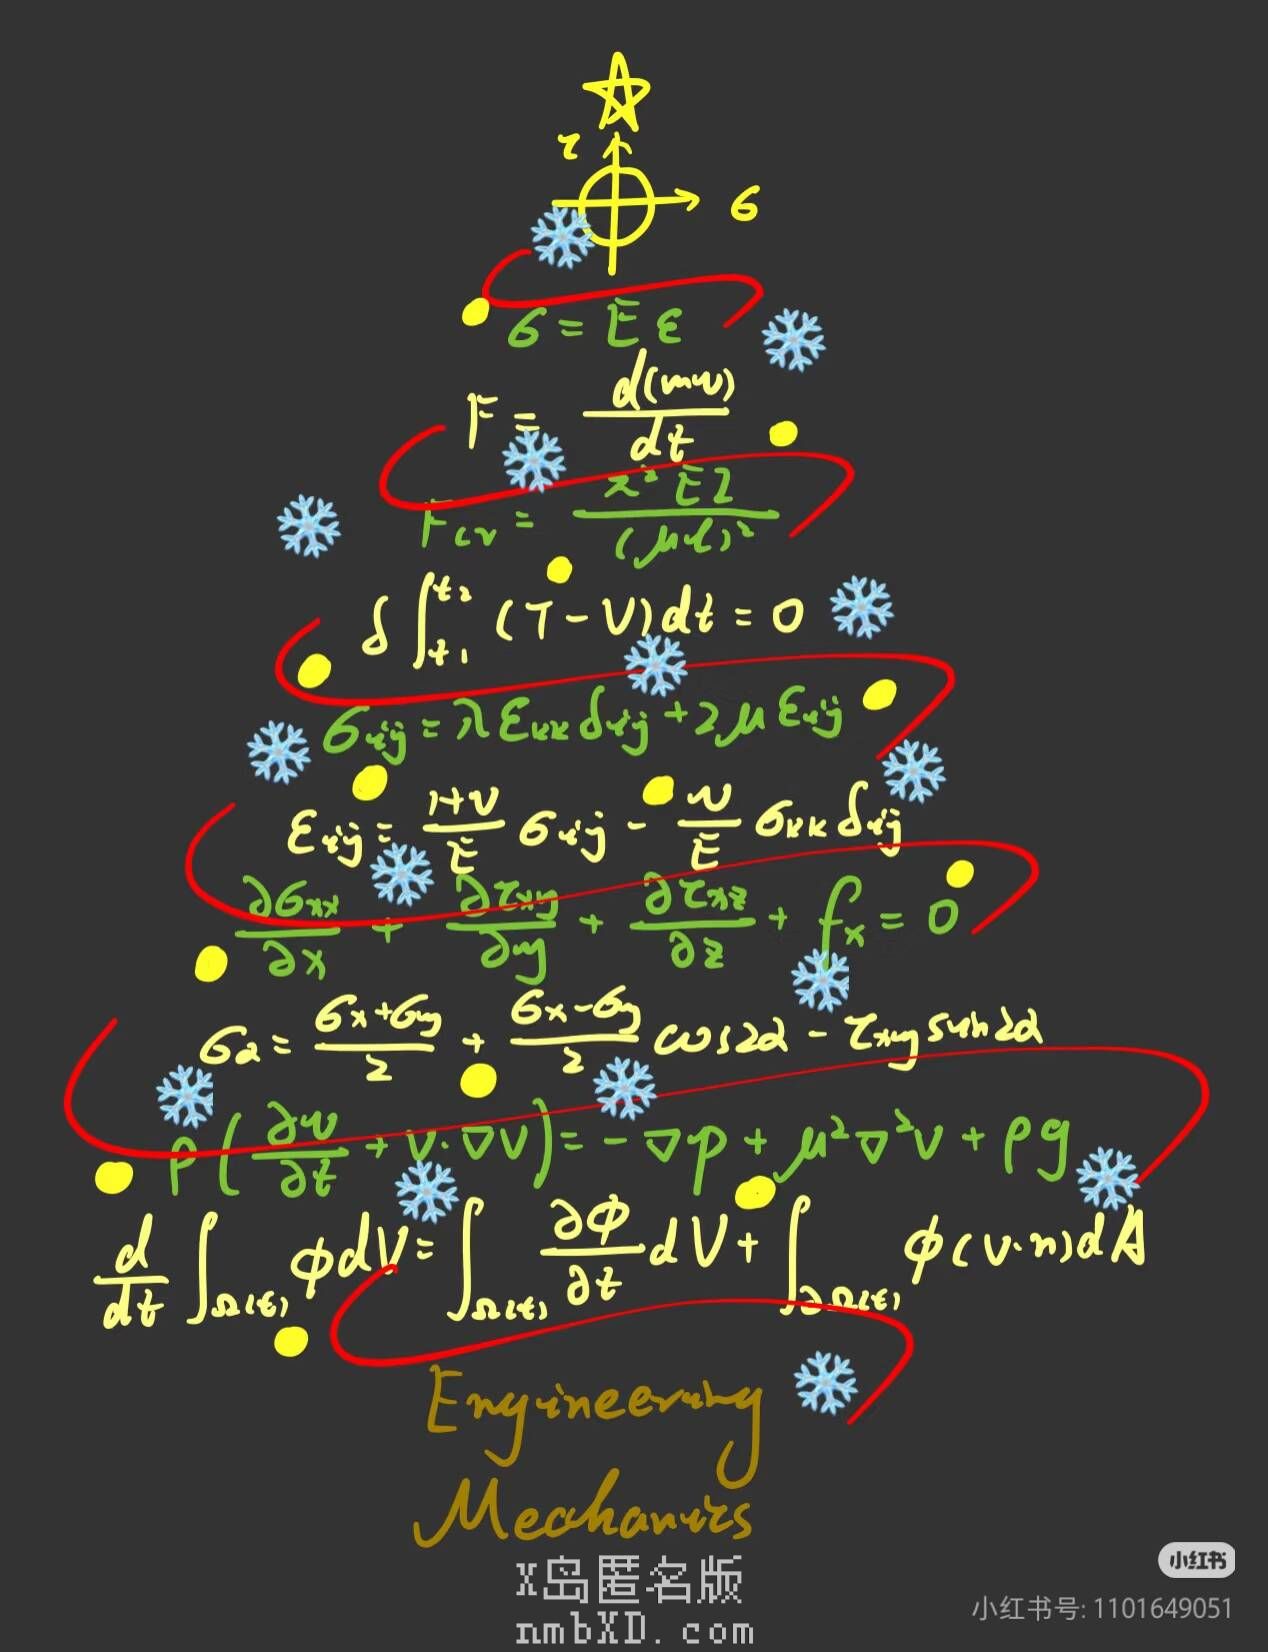 τ
σ
σ = E ε
F = d(mv)/dt
Fcr = π² E I/(μl)²
δ ∫_{t1}^{t2} (T - V)dt = 0
σij = λ εkk δij + 2μ εij
εij = (1+ν)/E σij - ν/E σkk δij
∂σxx/∂x + ∂τxy/∂y + ∂τxz/∂z + fx = 0
σα = (σx+σy)/2 + (σx-σy)/2 cos2α - τxy sin2α
ρ(∂v/∂t + v·∇v) = -∇p + μ²∇²v + ρg
d/dt ∫_{Ω(t)} ϕdV = ∫_{Ω(t)} ∂ϕ/∂t dV + ∫_{∂Ω(t)} ϕ(v·n)dA
Engineering
Mechanics
X岛匿名版
nmbXD.com
小红书
小红书号: 1101649051